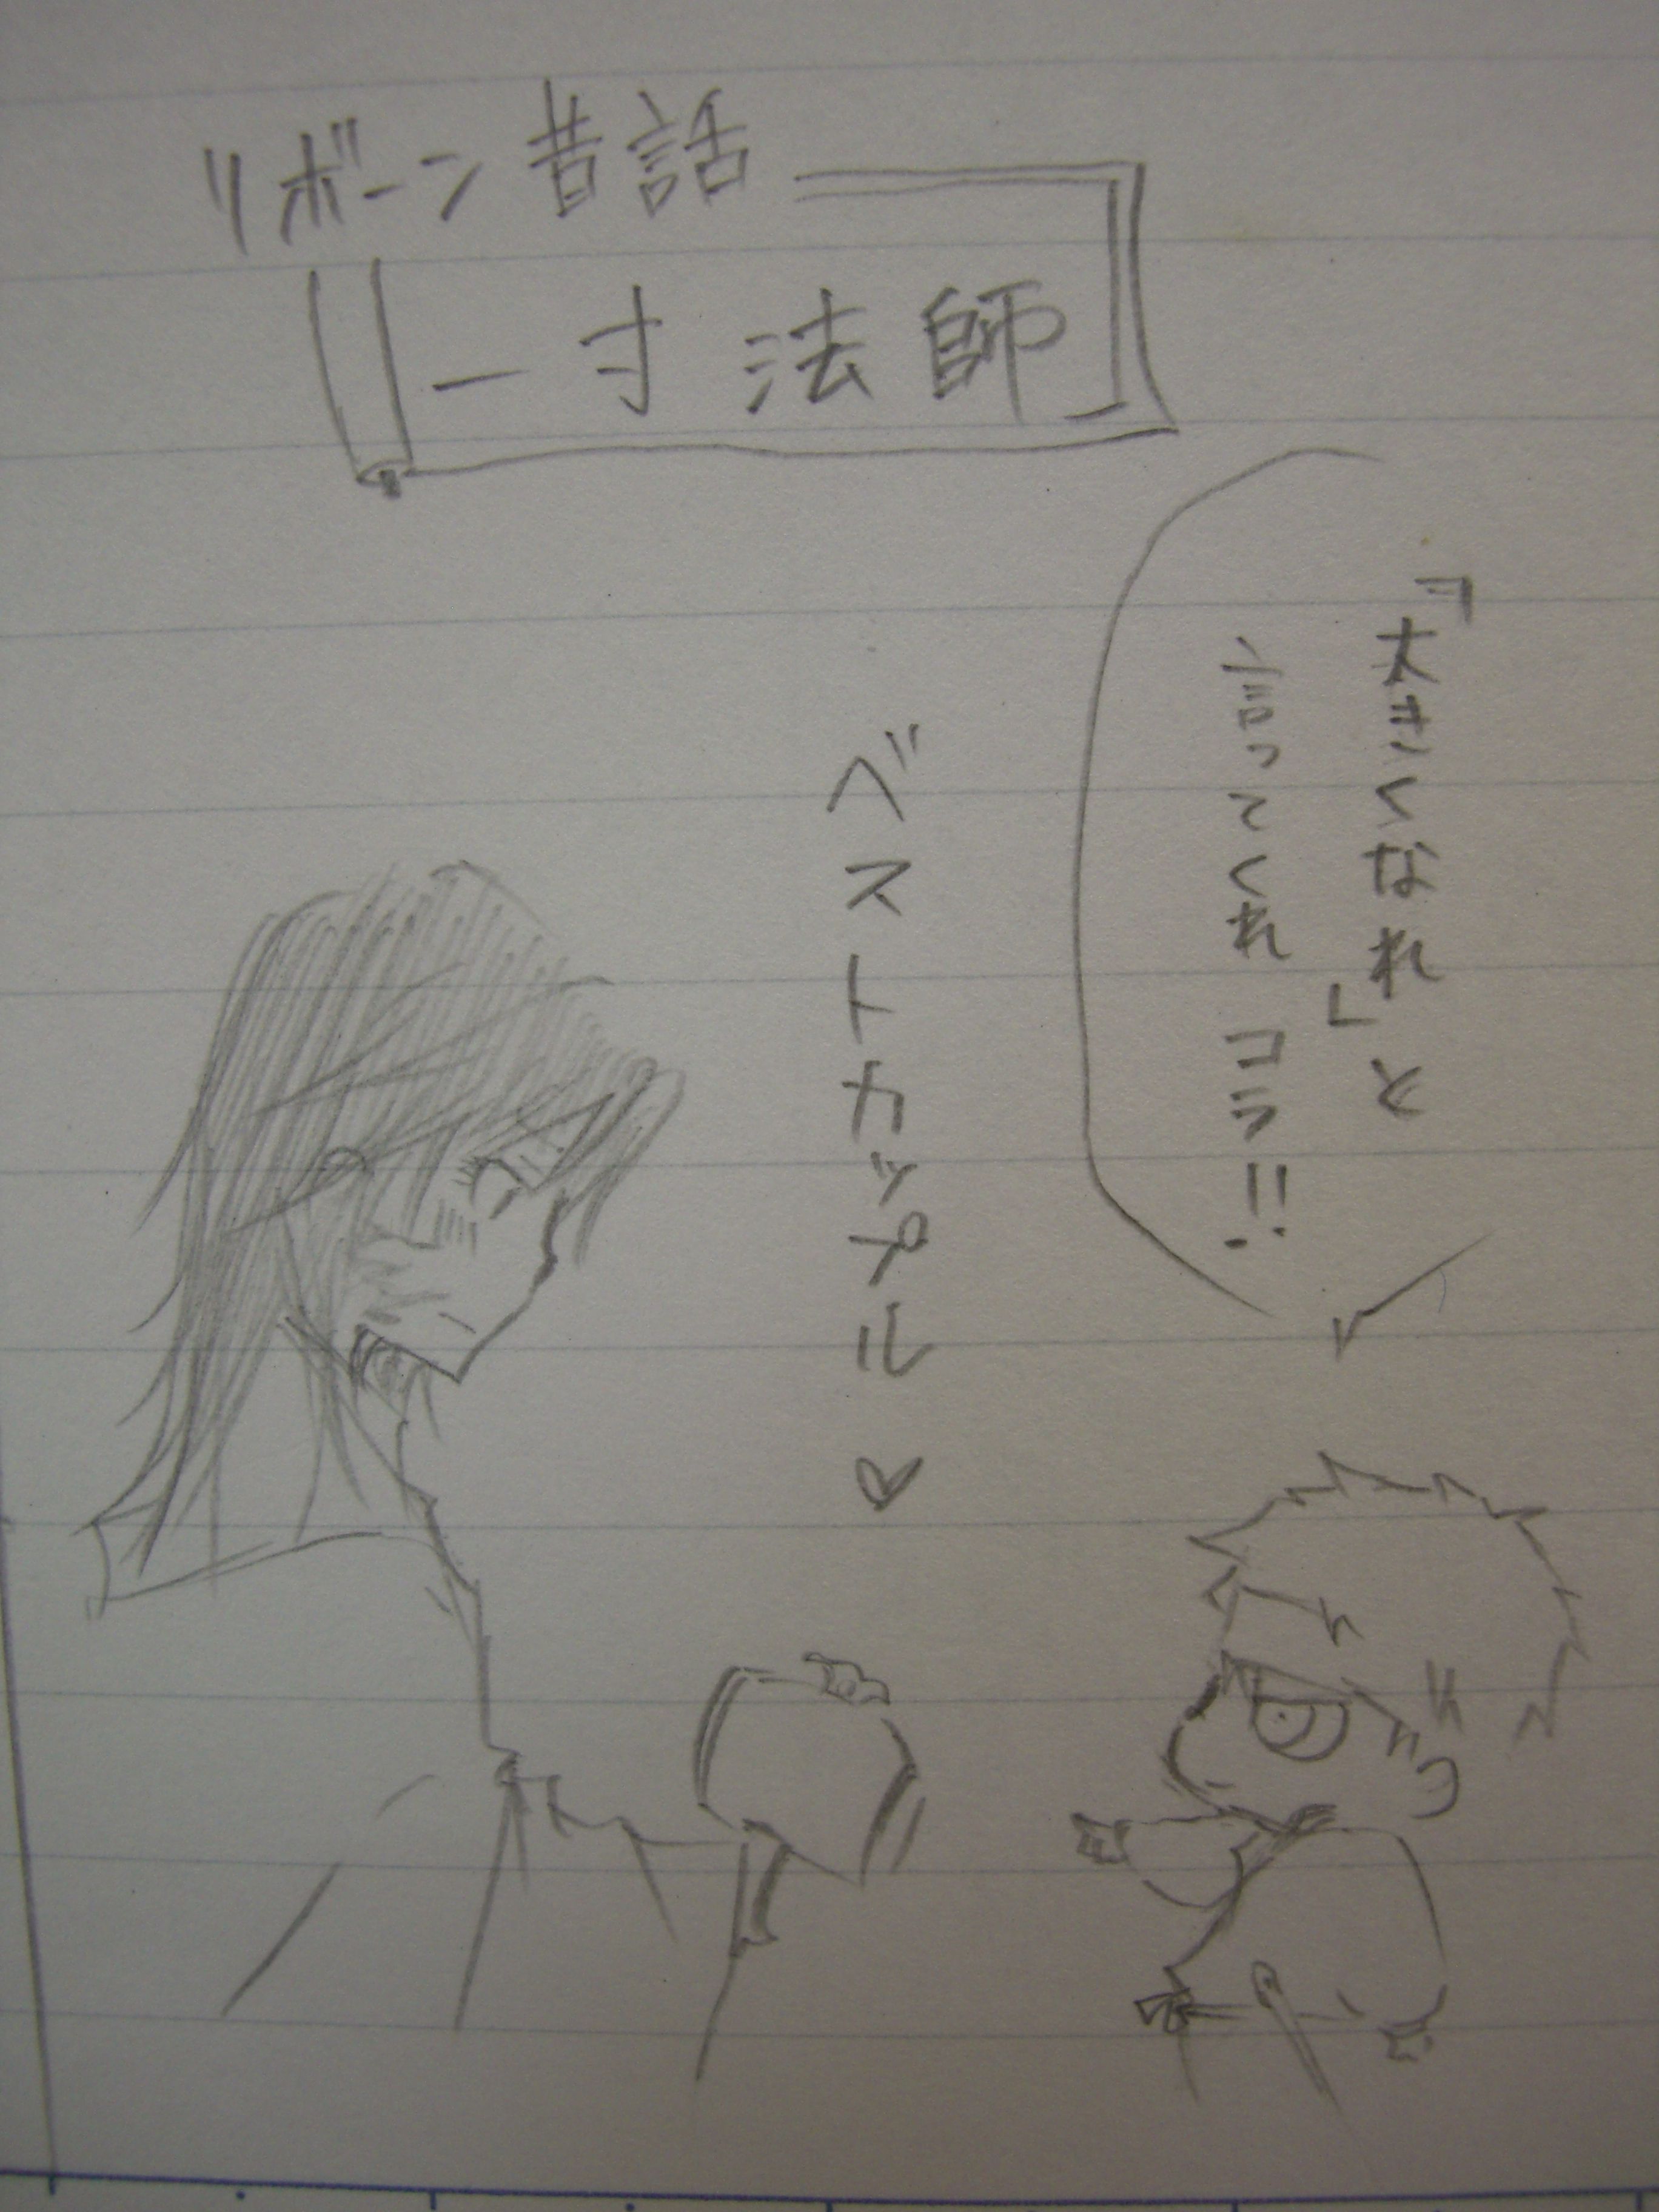 リボーン昔話
一寸法師
『大きくなれ」と
言ってくれ コラ!!
ベストカップル♡